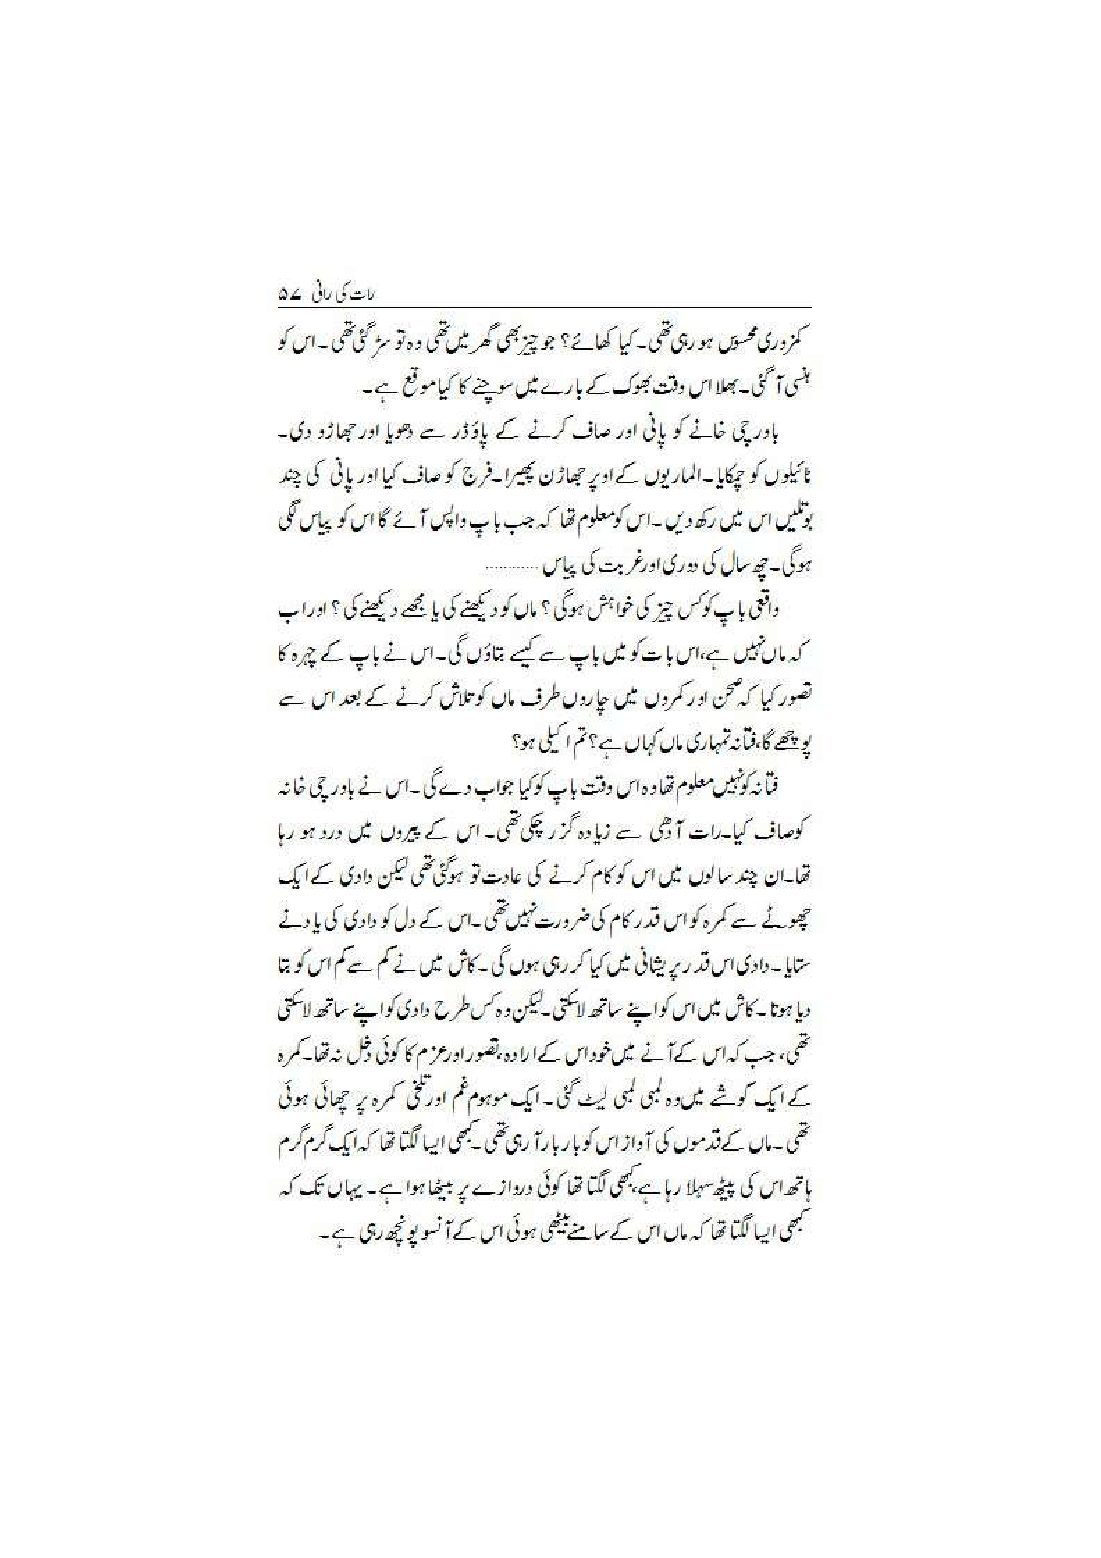 رات کی رانی ۵۷
کمزوری محسوس ہو رہی تھی۔ کیا کھائے؟ جو چیز بھی گھر میں تھی وہ تو سڑ گئی تھی۔ اس کو
ہنسی آ گئی۔ بھلا اس وقت بھوک کے بارے میں سوچنے کا کیا موقع ہے۔
باورچی خانے کو پانی اور صاف کرنے کے پاؤڈر سے دھویا اور جھاڑو دی۔
ٹائیلوں کو چمکایا۔ الماریوں کے اوپر جھاڑن پھیرا۔ فرج کو صاف کیا اور پانی کی چند
بوتلیں اس میں رکھ دیں۔ اس کو معلوم تھا کہ جب باپ واپس آئے گا اس کو پیاس لگی
ہوگی۔ چھ سال کی دوری اور غربت کی پیاس ............
واقعی باپ کو کس چیز کی خواہش ہوگی؟ ماں کو دیکھنے کی یا مجھے دیکھنے کی؟ اور اب
کہ ماں نہیں ہے، اس بات کو میں باپ سے کیسے بتاؤں گی۔ اس نے باپ کے چہرہ کا
تصور کیا کہ صحن اور کمروں میں چاروں طرف ماں کو تلاش کرنے کے بعد اس سے
پوچھے گا، فتانہ تمہاری ماں کہاں ہے؟ تم اکیلی ہو؟
فتانہ کو نہیں معلوم تھا وہ اس وقت باپ کو کیا جواب دے گی۔ اس نے باورچی خانہ
کو صاف کیا۔ رات آدھی سے زیادہ گزر چکی تھی۔ اس کے پیروں میں درد ہو رہا
تھا۔ ان چند سالوں میں اس کو کام کرنے کی عادت تو ہوگئی تھی لیکن دادی کے ایک
چھوٹے سے کمرہ کو اس قدر کام کی ضرورت نہیں تھی۔ اس کے دل کو دادی کی یاد نے
ستایا۔ دادی اس قدر پریشانی میں کیا کر رہی ہوں گی۔ کاش میں نے کم سے کم اس کو بتا
دیا ہوتا۔ کاش میں اس کو اپنے ساتھ لاسکتی۔ لیکن وہ کس طرح دادی کو اپنے ساتھ لاسکتی
تھی، جب کہ اس کے آنے میں خود اس کے ارادہ، تصور اور عزم کا کوئی دخل نہ تھا۔ کمرہ
کے ایک گوشے میں وہ لمبی لمبی لیٹ گئی۔ ایک موہوم غم اور تلخی کمرہ پر چھائی ہوئی
تھی۔ ماں کے قدموں کی آواز اس کو بار بار آ رہی تھی۔ کبھی ایسا لگتا تھا کہ ایک گرم گرم
ہاتھ اس کی پیٹھ سہلا رہا ہے، کبھی لگتا تھا کوئی دروازے پر بیٹھا ہوا ہے۔ یہاں تک کہ
کبھی ایسا لگتا تھا کہ ماں اس کے سامنے بیٹھی ہوئی اس کے آنسو پونچھ رہی ہے۔